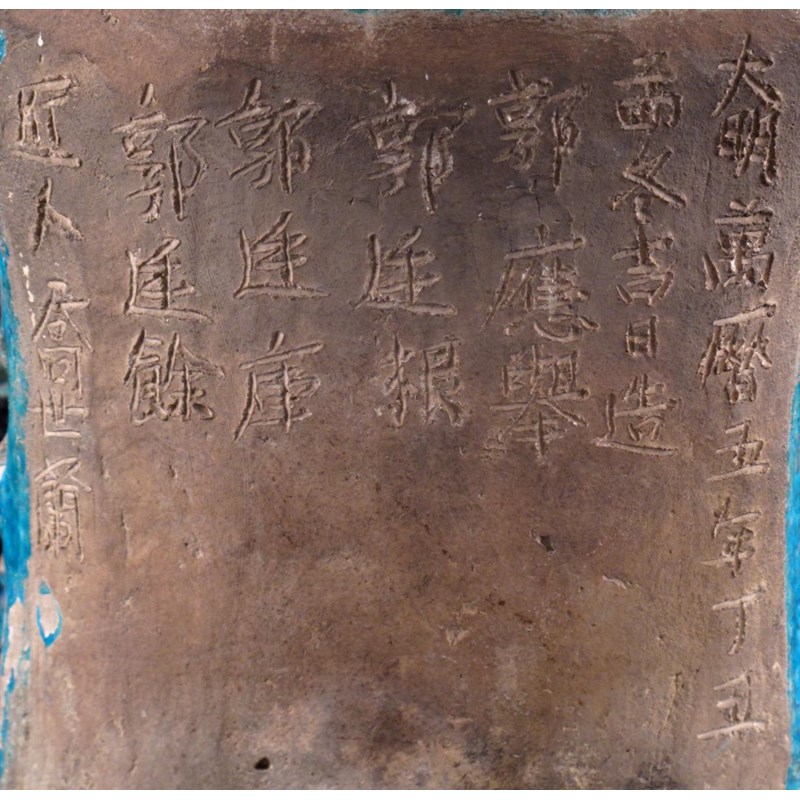 大明萬曆五年丁丑
孟冬吉日造
郭應舉
郭廷根
郭廷庫
郭廷餘
匠人喬世